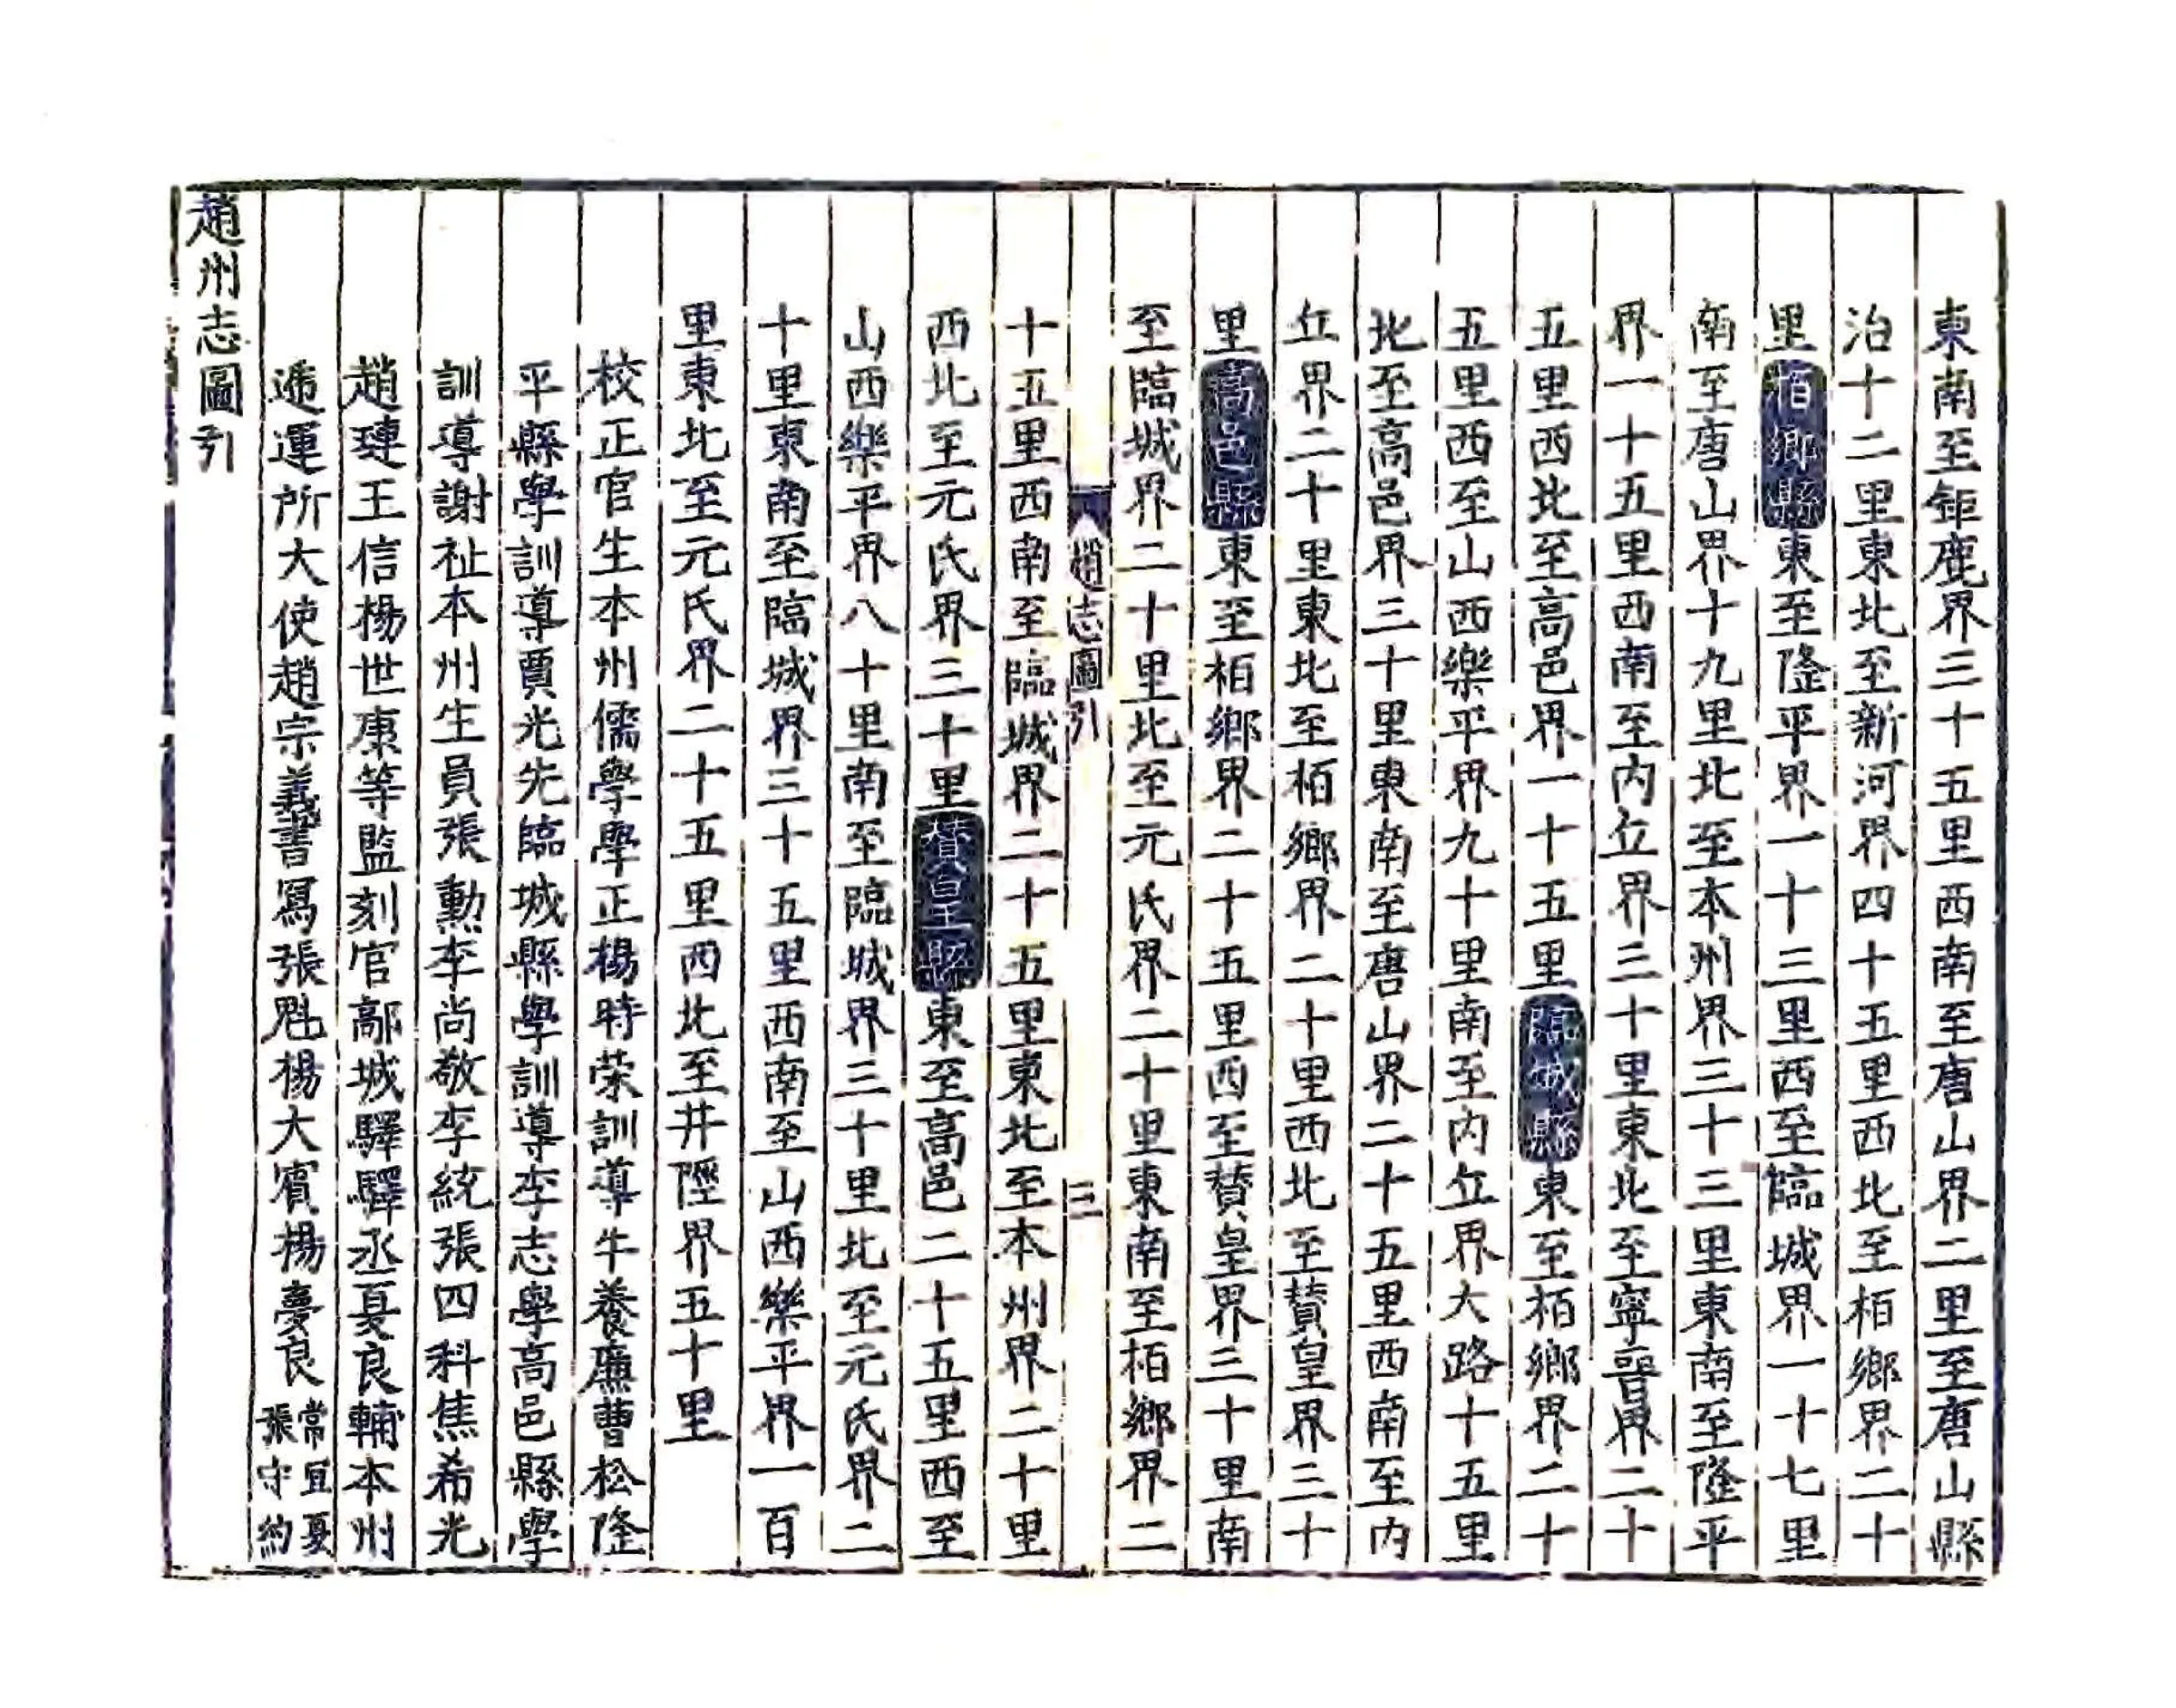 東南至鉅鹿界三十五里西南至唐山界二里至唐山縣
治十二里東北至新河界四十五里西北至栢鄉界二十
里栢鄉縣東至隆平界一十三里西至臨城界一十七里
南至唐山界十九里北至本州界三十三里東南至隆平
界一十五里西南至内丘界三十里東北至寧晉界二十
五里西北至高邑界一十五里臨城縣東至栢鄉界二十
五里西至山西樂平界九十里南至内丘界大路十五里
北至高邑界三十里東南至唐山界二十五里西南至内
丘界二十里東北至栢鄉界二十里西北至賛皇界三十
里高邑縣東至栢鄉界二十五里西至賛皇界三十里南
至臨城界二十里北至元氏界二十里東南至栢鄉界二
趙志圖引 三
十五里西南至臨城界二十五里東北至本州界二十里
西北至元氏界三十里賛皇縣東至高邑二十五里西至
山西樂平界八十里南至臨城界三十里北至元氏界二
十里東南至臨城界三十五里西南至山西樂平界一百
里東北至元氏界二十五里西北至井陘界五十里
校正官生本州儒學學正楊時荣訓導牛養廉曹松隆
平縣學訓導賈光先臨城縣學訓導李志學高邑縣學
訓導謝祉本州生員張勲李尚敬李統張四科焦希光
趙璉王信楊世康等監刻官鄗城驛驛丞夏良輔本州
逓運所大使趙宗義書寫張魁楊大賔楊夢良常宜夏張守約
趙州志圖引